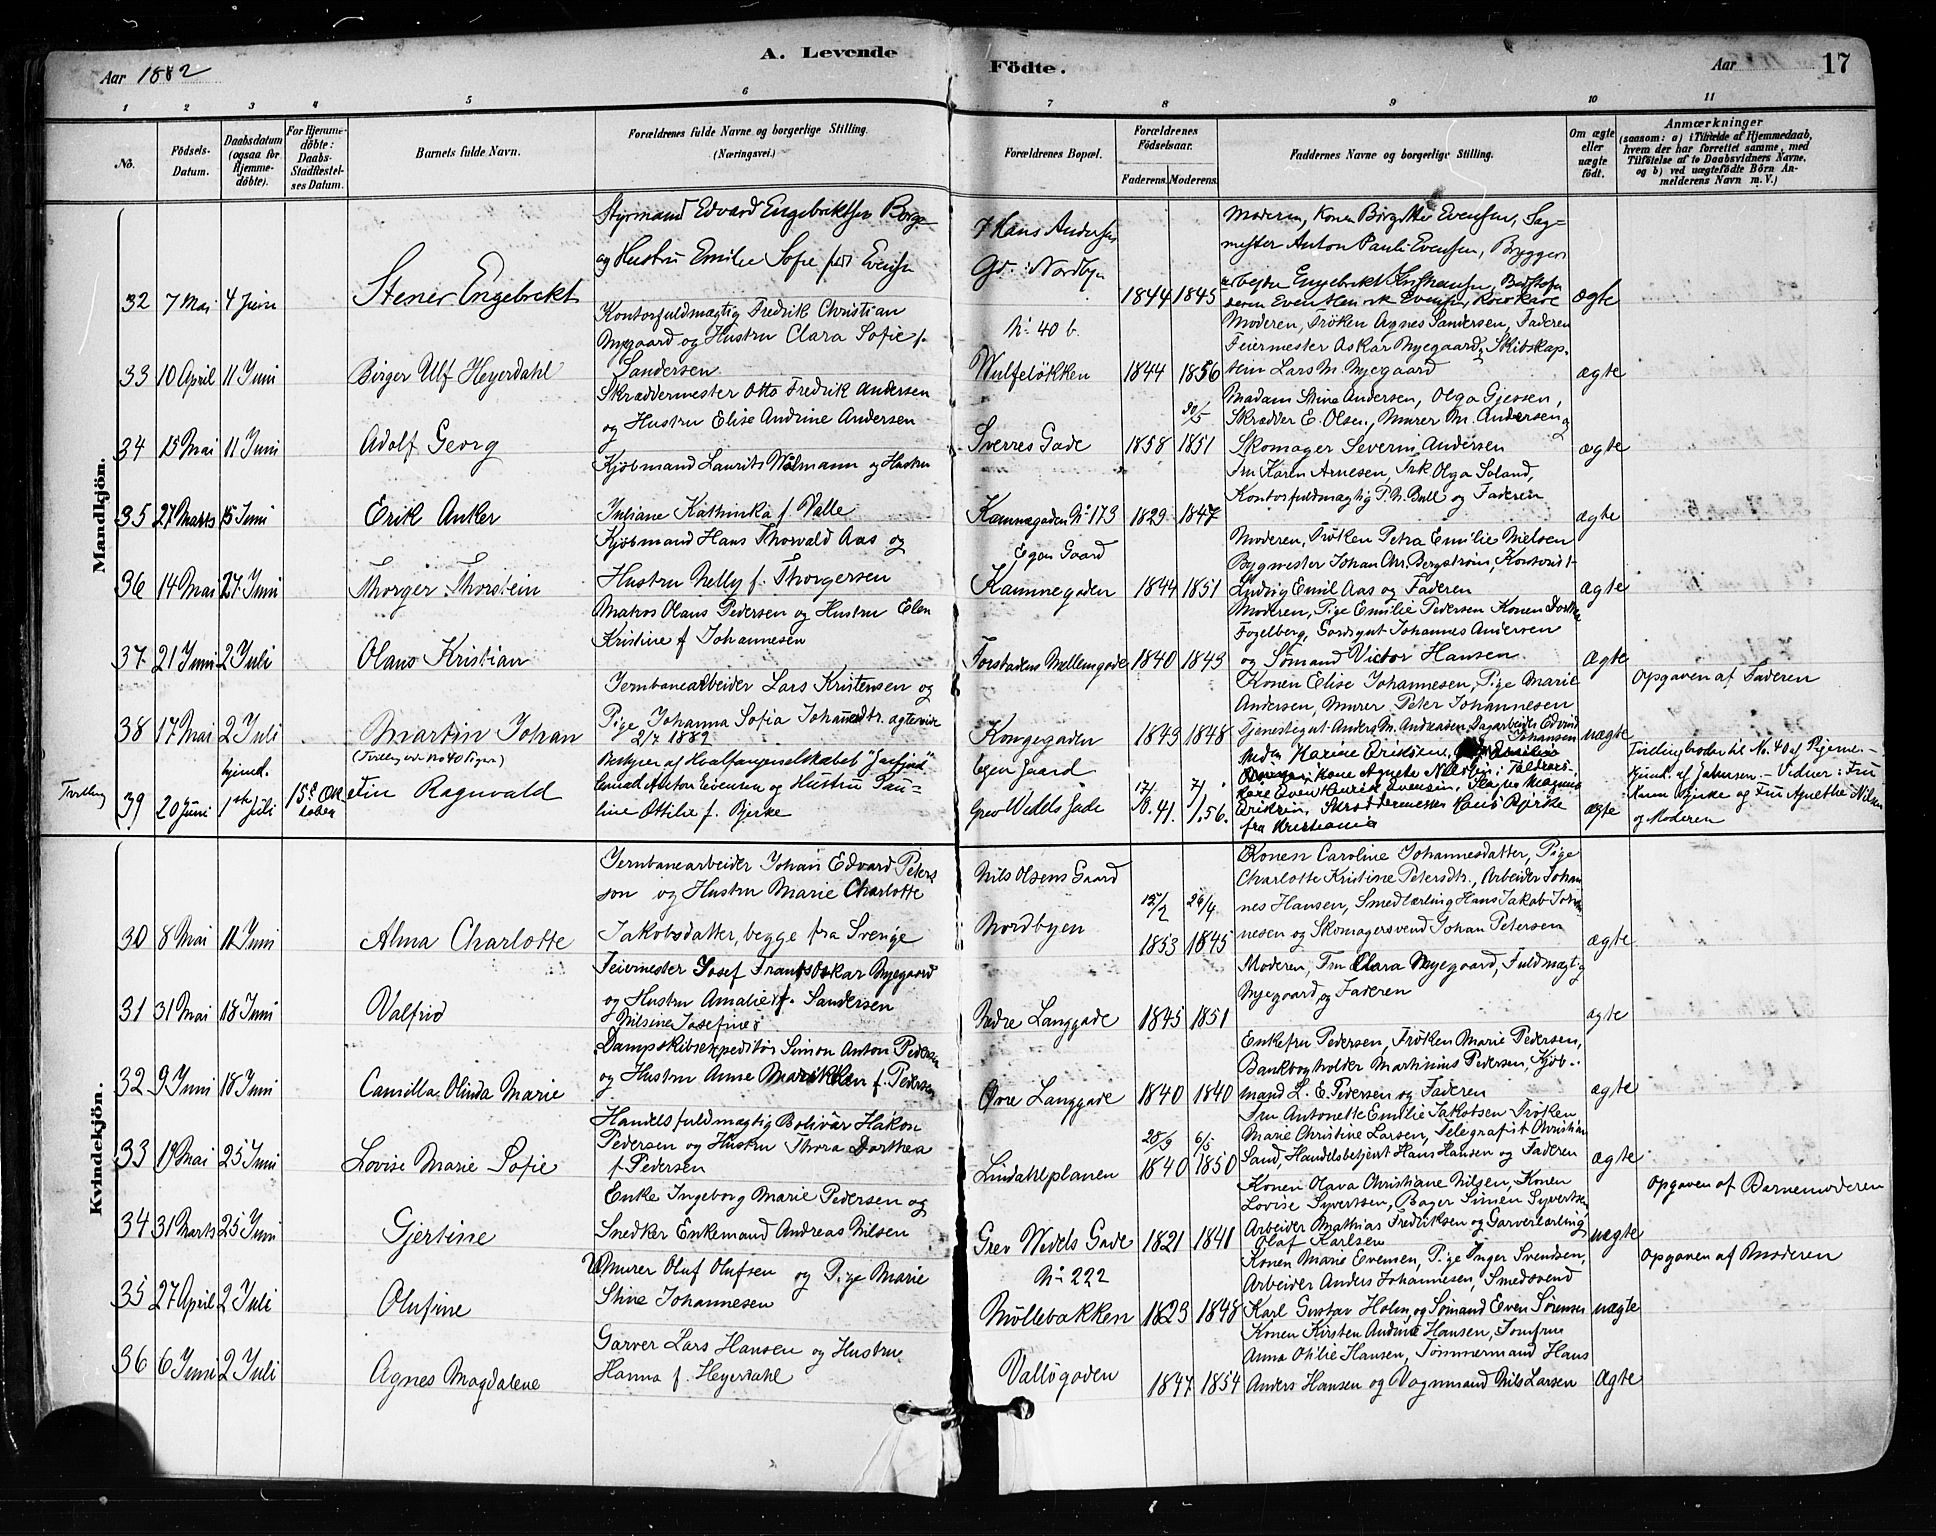 Aar 1882
A. Levende
Födte.
Aar
17
1 2 3 4 5 6 7 8 9 10 11
No.
Födsels-Datum.
Daabsdatum (ogsaa for Hjemmedöbte).
For Hjemmedöbte: Daabs-Stadfestelses Datum.
Barnets fulde Navn.
Forældrenes fulde Navne og borgerlige Stilling.
(Næringsvei.)
Forældrenes Bopæl.
Forældrenes Födselsaar.
Faderens. Moderens.
Faddernes Navne og borgerlige Stilling.
Om ægte eller uægte födt.
Anmærkninger
(saasom: a) i Tilfælde af Hjemmedaab,
hvem der har forrettet samme, med
Tilföielse af to Daabsvidners Navne,
og b) ved uægtefödte Börn Anmelderens Navn m. V.)
Mandkjön.
32 7 Mai 4 Juni
Stener Engebrekt
Styrmand Edvard Engebriktsen Berge
og Hustru Emilie Sofie født Evensen
Hans Andersens
Gd. i Nordbyn
1844 1845
Moderen, Konen Birgitte Evensen, Sag-
mester Anton Pauli Evensen, Brygger
ægte
33 10 April 11 Juni
Birger Ulf Heyerdahl
Kontorfuldmægtig Fredrik Christian
Nyegaard og Hustru Clara Sofie f.
Sandersen
No 40 b.
Wulfeløkken
1844 1856
Moderen, Frøken Agnes Sandersen, Faderen
Feiermester Oskar Nyegaard, Skibskap-
tein Lars M. Nyegaard
ægte
34 15 Mai 11 Juni
Adolf Georg
Skræddermester Otto Fredrik Andersen
og Hustru Elise Andrine Andersen
Sverres Gade
1858 30/5 1851
Madam Stine Andersen, Olga Gjessen,
Skrædder E. Olsen, Murer M. Andersen og
Skomager Severin Andersen
ægte
35 27 Marts 15 Juni
Erik Anker
Kjøbmand Laurits Wølmann og Hustru
Juliane Kathinka f. Valle
Kamnegaden No 173
1829 1847
Fru Karen Arnesen, Frk Olga Soland,
Kontorfuldmægtig P. N. Bull og Faderen
ægte
36 14 Mai 27 Juni
Thorger Thorstein
Kjøbmand Hans Thorvald Aas og
Hustru Nelly f. Thorgersen
Egen Gaard
Kamnegaden
1844 1851
Moderen, Frøken Petra Emilie Nielsen
Bygmester Johan Chr. Bergstrøm, Kontorist
Ludvig Emil Aas og Faderen
ægte
37 21 Juni 2 Juli
Olaus Kristian
Matros Olaus Pedersen og Hustru Elen
Kristine f Johannesen
Forstadens Mellemgade
1840 1843
Moderen, Pige Emilie Pedersen Konen Dorthe
Fogelberg, Gordsgut Johannes Andersen
og Sømand Victor Hansen
ægte
38 17 Mai 2 Juli
Martin Johan
Jernbanearbeider Lars Kristensen og
Pige Johanna Sofia Johannesdtr. ægteviede
2/7 1882
Kongegaden
1843 1848
Konen Elise Johannesen, Pige Marie
Andersen, Murer Peter Johannesen
Tjenestegut Anders M. Andersen, Dagarbeider Edvind
Johansen
uægte
Opgaven af Faderen
Tvilling
39 20 Juni hjemd. 1ste Juli 15de Oktober
(Tvilling med No 40 Piger)
Fin Ragnvald
Bestyrer af Hvalfangerselskabet "Jarfjord"
Conrad Anton Evensen og Hustru Pau-
line Ottilie f. Bjerke
Egen Gaard
Grev Wedels Gade
17/10.41. 7/1.56.
fra Kristiania
ægte
Tvillingbroder til No. 40 af Pigerne –
Hjemd. af Jakobsen – Vidner: Fru
Karen Bjerke og Fru Agnethe Nilsen
og Moderen
Kvindekjön.
30 8 Mai 11 Juni
Alma Charlotte
Jernbanearbeider Johan Edvard Peters
son og Hustru Marie Charlotte
Jakobsdatter, begge fra Sverige
Nils Olsens Gaard
Nordbyen
15/2 1853 26/4 1845
Konen Caroline Johannesdatter, Pige
Charlotte Kristine Petersdtr., Arbeider Johan
nes Hansen, Smedlærling Hans Jakob Johan
nesen og Skomagersvend Johan Petersen
ægte
31 31 Mai 18 Juni
Valfrid
Feiermester Josef Frants Oskar Nyegaard
og Hustru Amalie f. Sandersen
Nilsine Josefine
Nedre Langgade
1845 1851
Moderen, Fru Clara Nyegaard, Fuldmægtig
Nyegaard og Faderen
ægte
32 9 Juni 18 Juni
Camilla Olinda Marie
Dampskibsexpeditør Simon Anton Pedersen
og Hustru Anne Marthea f. Pedersen
Øvre Langgade
1840 1840
Enkefru Pedersen, Frøken Marie Pedersen,
Bankbogholder Martinius Pedersen, Kjøb-
mand L. E. Pedersen og Faderen
ægte
33 19 Mai 25 Juni
Lovise Marie Sofie
Handelsfuldmægtig Bolivar Håkon
Pedersen og Hustru Thora Dorthea
f. Pedersen
Lindahlplanen
28/9 1840 6/5 1850
Fru Antonette Emilie Jakobsen Frøken
Marie Christine Larsen, Telegrafist Christian
Sand, Handelsbetjent Hans Hansen og Faderen
ægte
34 31 Marts 25 Juni
Gjertine
Enke Ingeborg Marie Pedersen og
Snedker Enkemand Andreas Nilsen
Grev Wedels Gade
No 222
1821 1841
Konen Olava Christiane Nilsen, Konen
Lovise Syvertsen, Bager Simen Syvertsen
Arbeider Mathias Fredriksen og Garverlærling
Olaf Karlsen
uægte
Opgaven af Barnemoderen
35 27 April 2 Juli
Olufine
Murer Oluf Olufsen og Pige Marie
Stine Johannesen
Møllebakken
1823 1848
Konen Marie Evensen, Pige Inger Svendsen,
Arbeider Anders Johannesen, Smedsvend
Karl Gustav Holm, og Sømand Even Sørensen
uægte
Opgaven af Moderen
36 6 Juni 2 Juli
Agnes Magdalene
Garver Lars Hansen og Hustru
Hanna f. Heyerdahl
Valløgaden
1847 1854
Konen Kirsten Andrine Hansen, Jomfrue
Anna Otilie Hansen, Tømmermand Hans
Anders Hansen og Vognmand Nils Larsen
Ægte